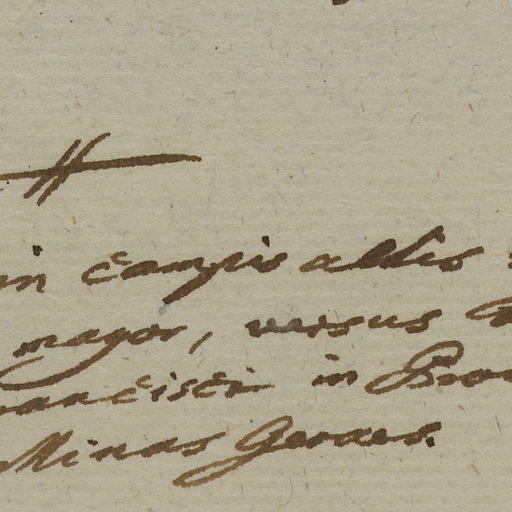 in campis altis
mayor, versus
ancisci in Prov
Minas Geraes.